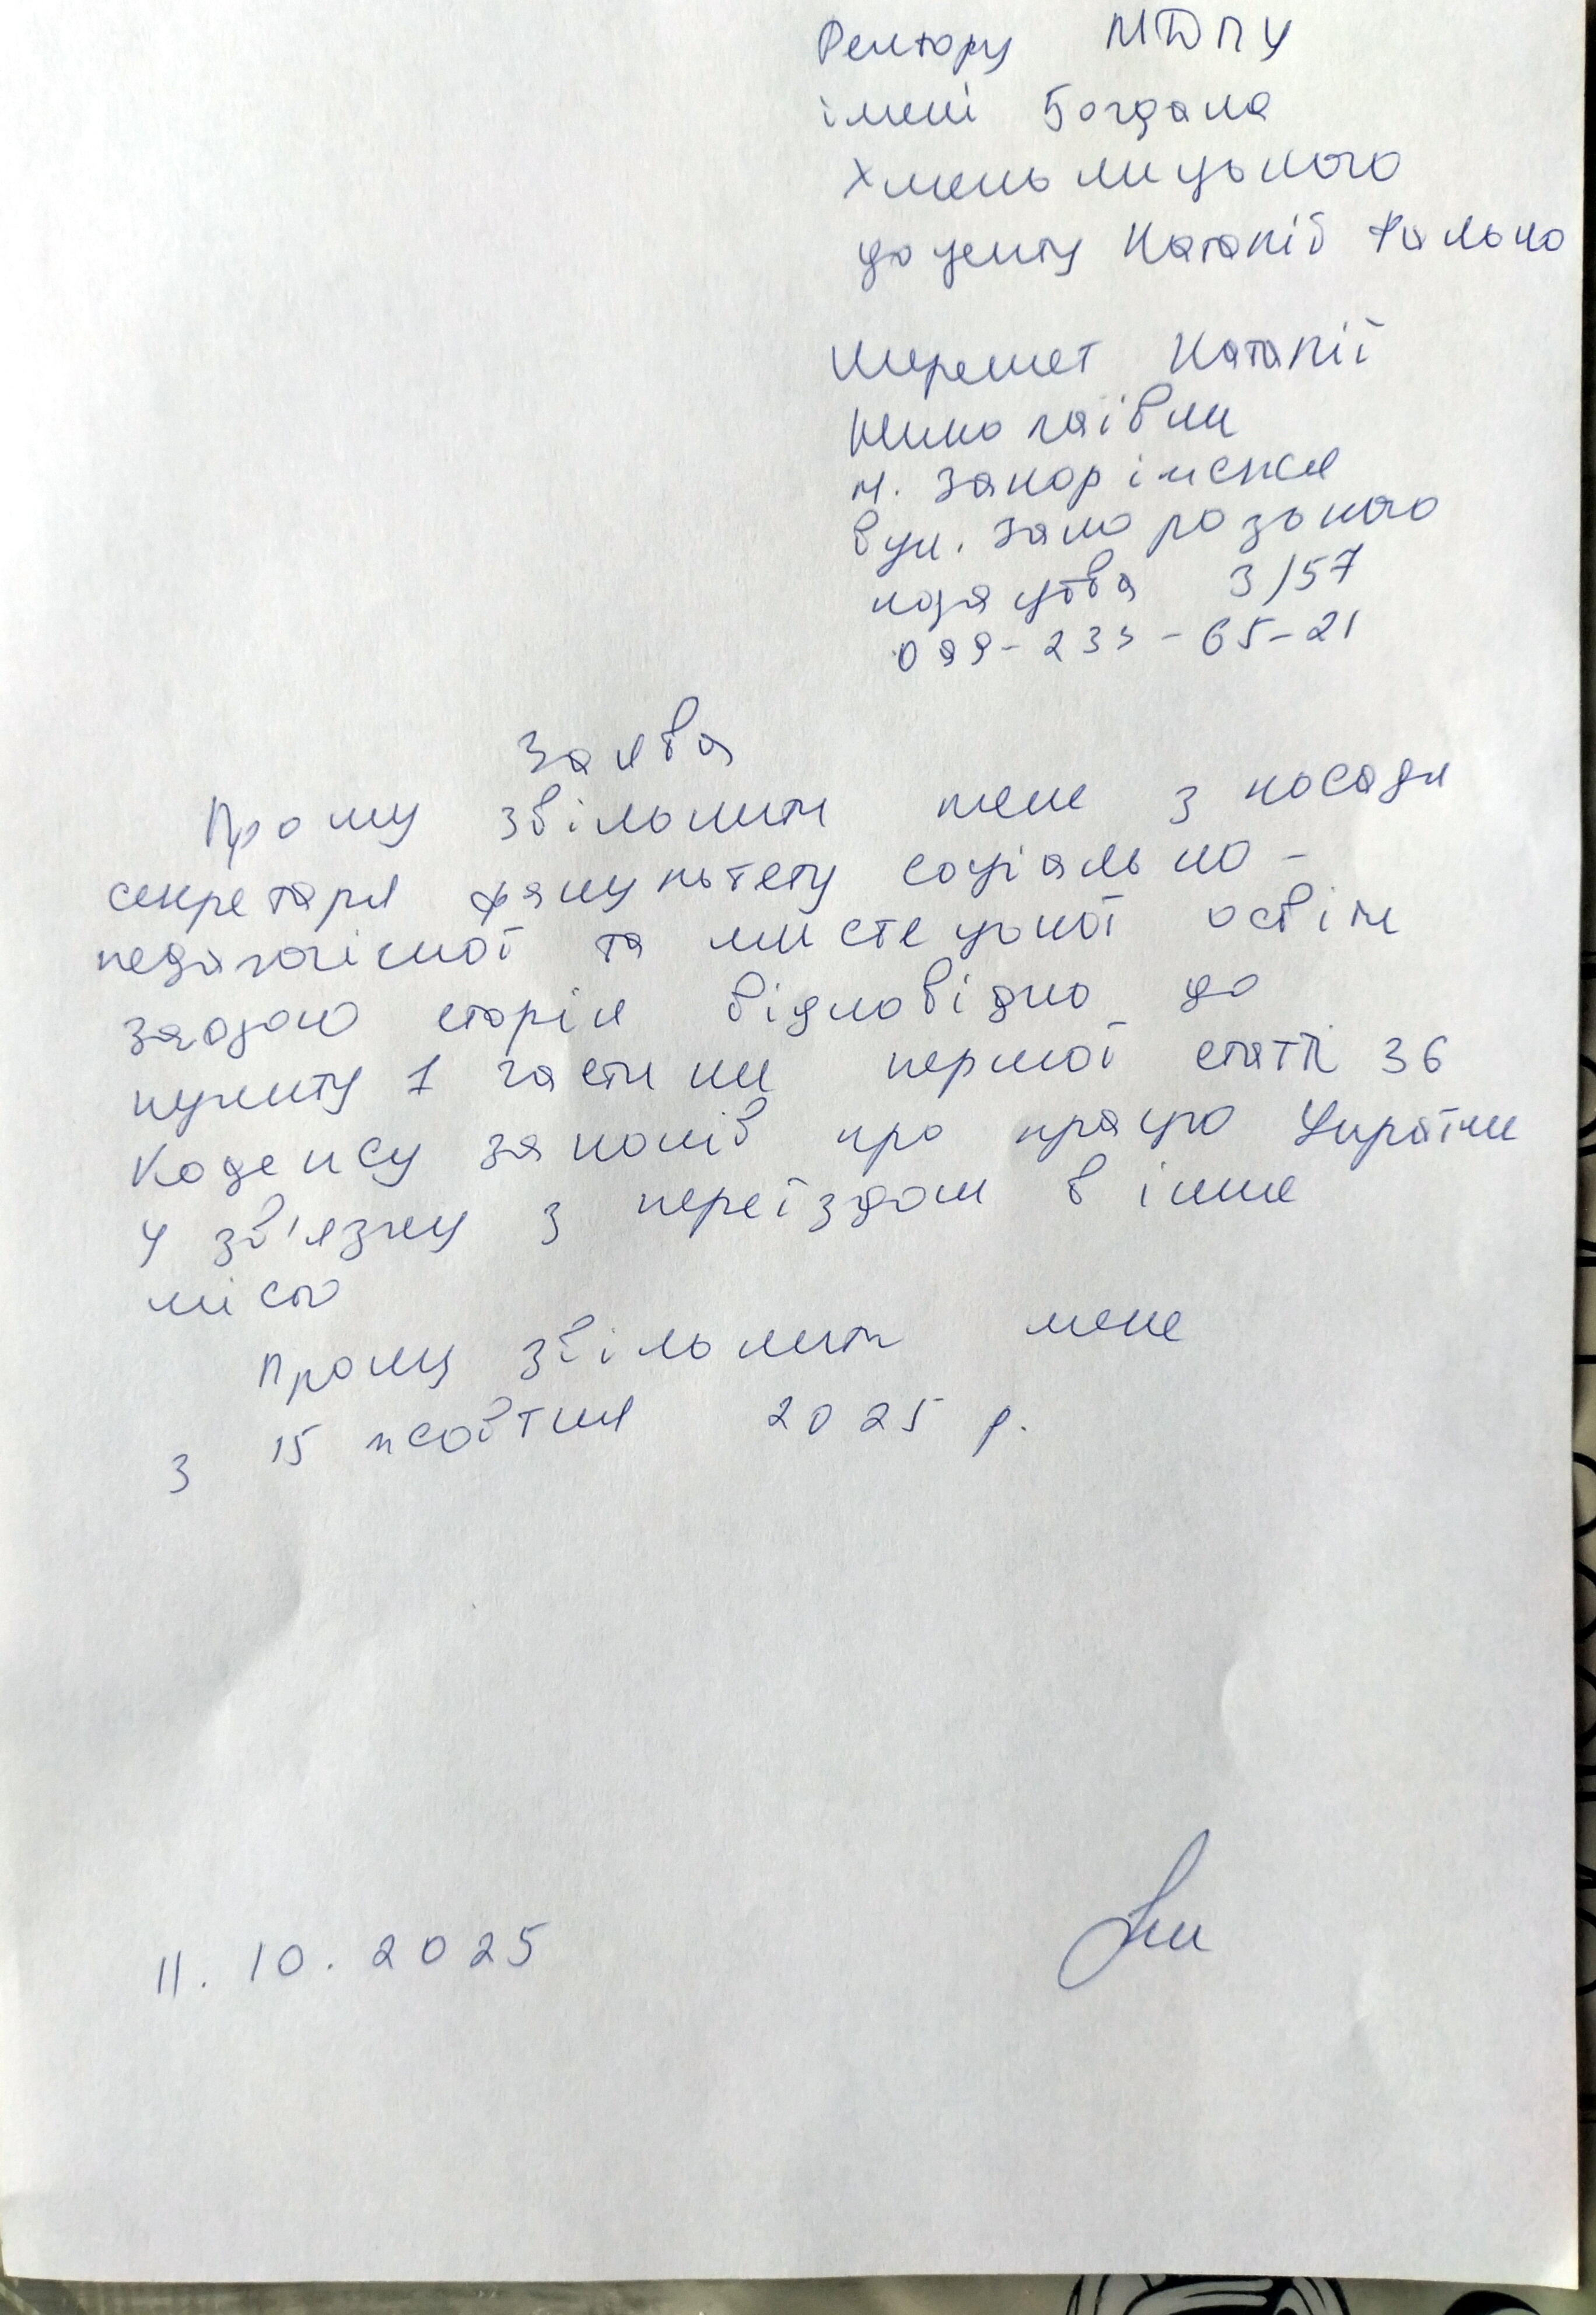 Ректору МДПУ
імені Богдана
Хмельницького
доценту Наталії Фалько
Шеремет Наталії
Миколаївни
м. Запоріжжя
вул. Запорозького
козацтва 3/57
099-233-65-21
Заява
Прошу звільнити мене з посади
секретаря факультету соціально-
педагогісної та мистецької освіти
згодою сторін відповідно до
пункту 1 частини першої статті 36
Кодексу законів про працю України
у зв'язку з переїздом в інше
місто
Прошу звільнити мене
з 15 жовтня 2025 р.
11.10.2025